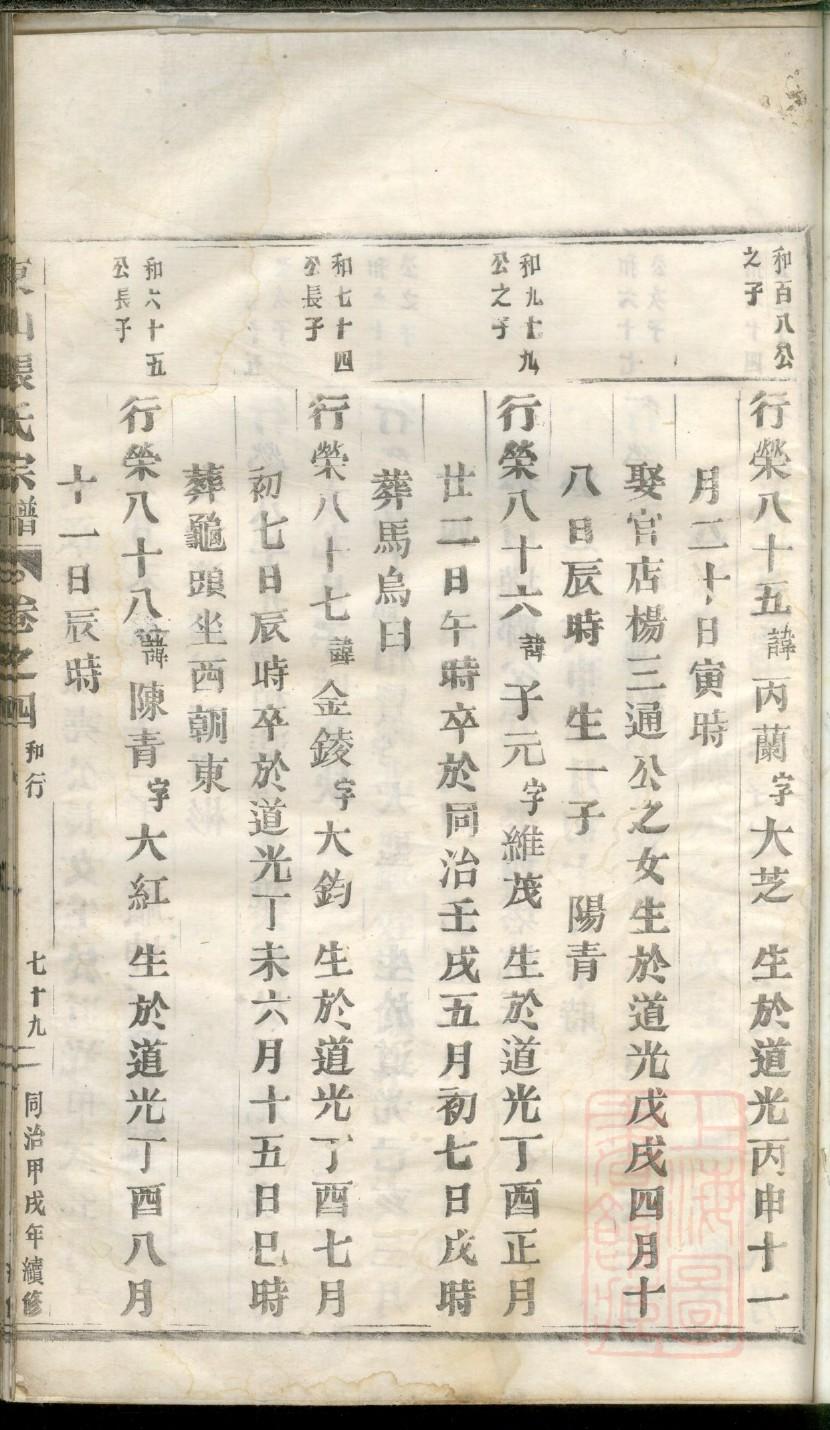 和百八公
之子
行榮八十五諱丙蘭字大芝 生於道光丙申十一
月二十日寅時
娶官店楊三通公之女生於道光戊戌四月十
八日辰時 生一子 陽青
和九十九
公之子
行榮八十六諱子元字維茂 生於道光丁酉正月
廿二日午時卒於同治壬戌五月初七日戌時
葬馬烏臼
和七十四
公長子
行榮八十七諱金錂字大鈞 生於道光丁酉七月
初七日辰時卒於道光丁未六月十五日巳時
葬龜頭坐西朝東
和六十五
公長子
行榮八十八諱陳青字大紅 生於道光丁酉八月
十一日辰時
東山張氏宗譜 卷之四 和行 七十九 同治甲戌年續修
上海圖
書館藏